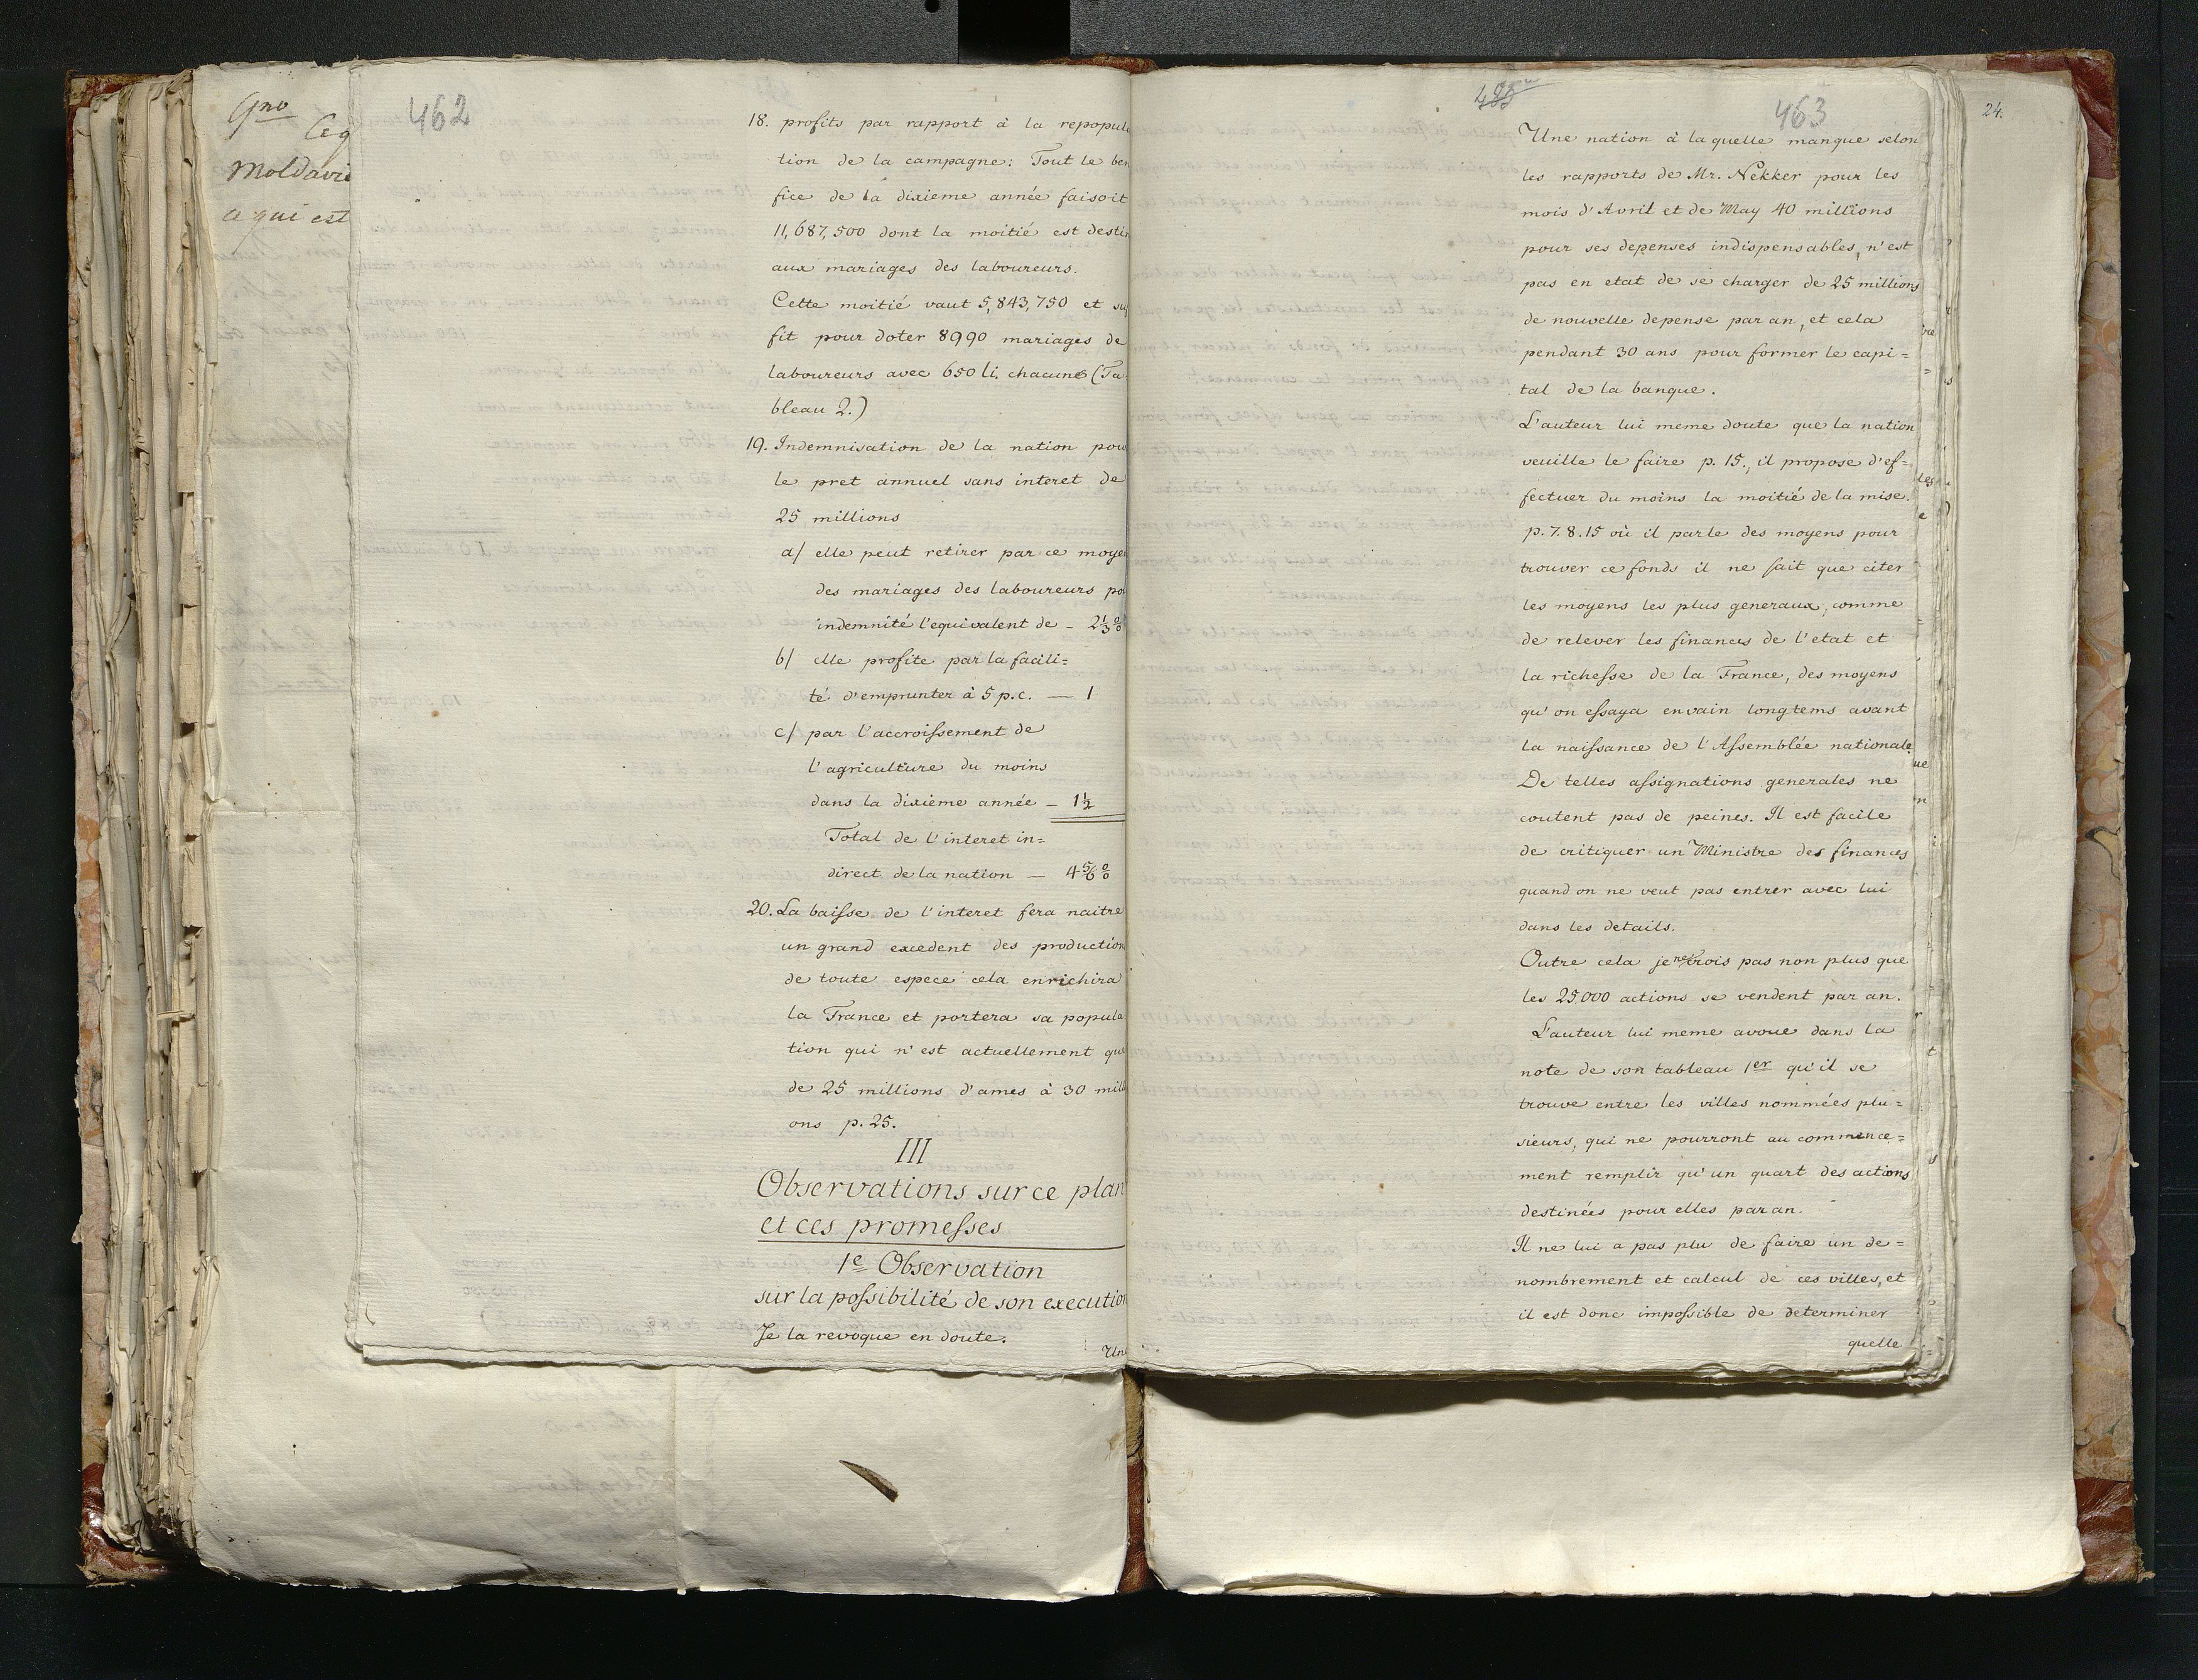 462
Moldavi
ce qui est
18. profits par rapport à la repopula
tion de la campagne: Tout le ben
fice de la dixieme année faisoit
11,687,500 dont la moitié est destin
aux mariages des laboureurs.
Cette moitié vaut 5,843,750 et suf
fit pour doter 8990 mariages de
laboureurs avec 650 li. chacune (Ta=
bleau 2.)
19. Indemnisation de la nation pour
le pret annuel sans interet de
25 millions
a/ elle peut retirer par ce moyen
des mariages des laboureurs po
indemnité l'equivalent de - 2⅓ %
b/ elle profite par la facili=
té d'emprunter à 5 p.c. — 1
c/ par l'accroissement de
l'agriculture du moins
dans la dixieme année — 1½
Total de l'interet in=
direct de la nation — 4⅚ %
20. La baisse de l'interet fera naitre
un grand excedent des production
de toute espece cela enrichira
la France et portera sa popula
tion qui n'est actuellement que
de 25 millions d'ames à 30 milli
ons p. 25.
III
Observations sur ce plan
et ces promesses
1e Observation
sur la possibilité de son execution
Je la revoque en doute.
Une
463
24.
Une nation à laquelle manque selon
les rapports de Mr. Nekker pour les
mois d'Avril et de May 40 millions
pour ses depenses indispensables, n'est
pas en etat de se charger de 25 millions
de nouvelle depense par an, et cela
pendant 30 ans pour former le capi=
tal de la banque.
L'auteur lui meme doute que la nation
veuille le faire p. 15., il propose d'ef=
fectuer du moins la moitié de la mise.
p. 7. 8. 15 où il parle des moyens pour
trouver ce fonds il ne fait que citer
les moyens les plus generaux, comme
de relever les finances de l'etat et
la richesse de la France, des moyens
qu'on essaya envain longtems avant
la naissance de l'Assemblée nationale.
De telles assignations generales ne
coutent pas de peines. Il est facile
de critiquer un Ministre des finances
quand on ne veut pas entrer avec lui
dans les details.
Outre cela je ne crois pas non plus que
les 25,000 actions se vendent par an.
L'auteur lui meme avoue dans la
note de son tableau 1er qu'il se
trouve entre les villes nommées plu=
sieurs, qui ne pourront au commence=
ment remplir qu'un quart des actions
destinées pour elles par an.
Il ne lui a pas plu de faire un de=
nombrement et calcul de ces villes, et
il est donc impossible de determiner
quelle